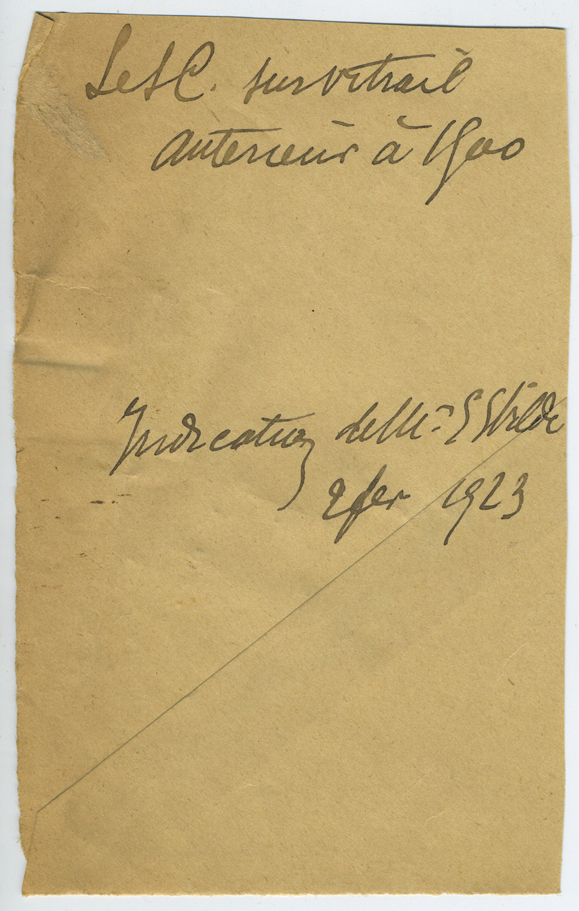 Le S C. sur vitrail
antérieur à 1900
Indication de Mr
2 fev 1923